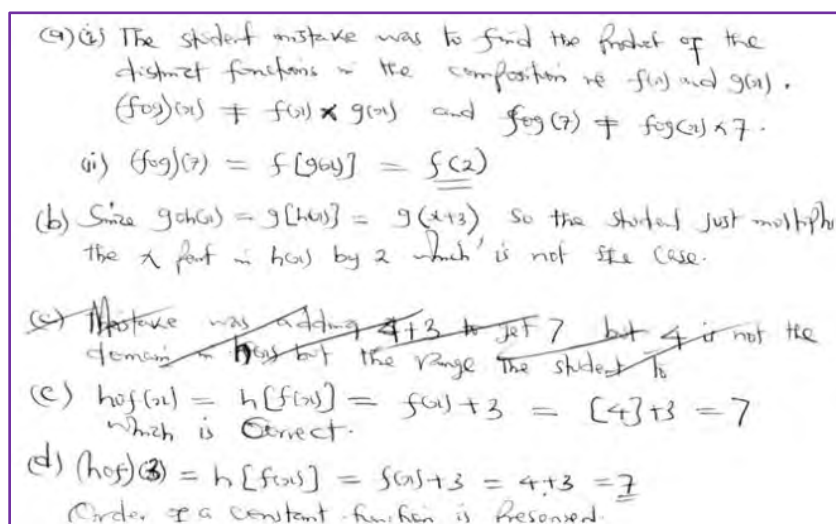 (a)(i) The student mistake was to find the product of the
distinct functions in the composition ie f(x) and g(x).
(fog)(x) ≠ f(x) × g(x) and fog(7) ≠ fog(x) × 7.
(ii) (fog)(7) = f[g(x)] = f(2)
(b) Since goh(x) = g[h(x)] = g(x+3) so the student just multiply
the x part in h(x) by 2 which is not the case.
(c) Mistake was adding 4+3 to get 7 but 4 is not the
domain in h(x) but the range The student to
(c) hof(x) = h[f(x)] = f(x)+3 = [4]+3 = 7
which is correct.
(d) (hof)(3) = h[f(x)] = f(x)+3 = 4+3 = 7
Order of a constant function is Preserved.